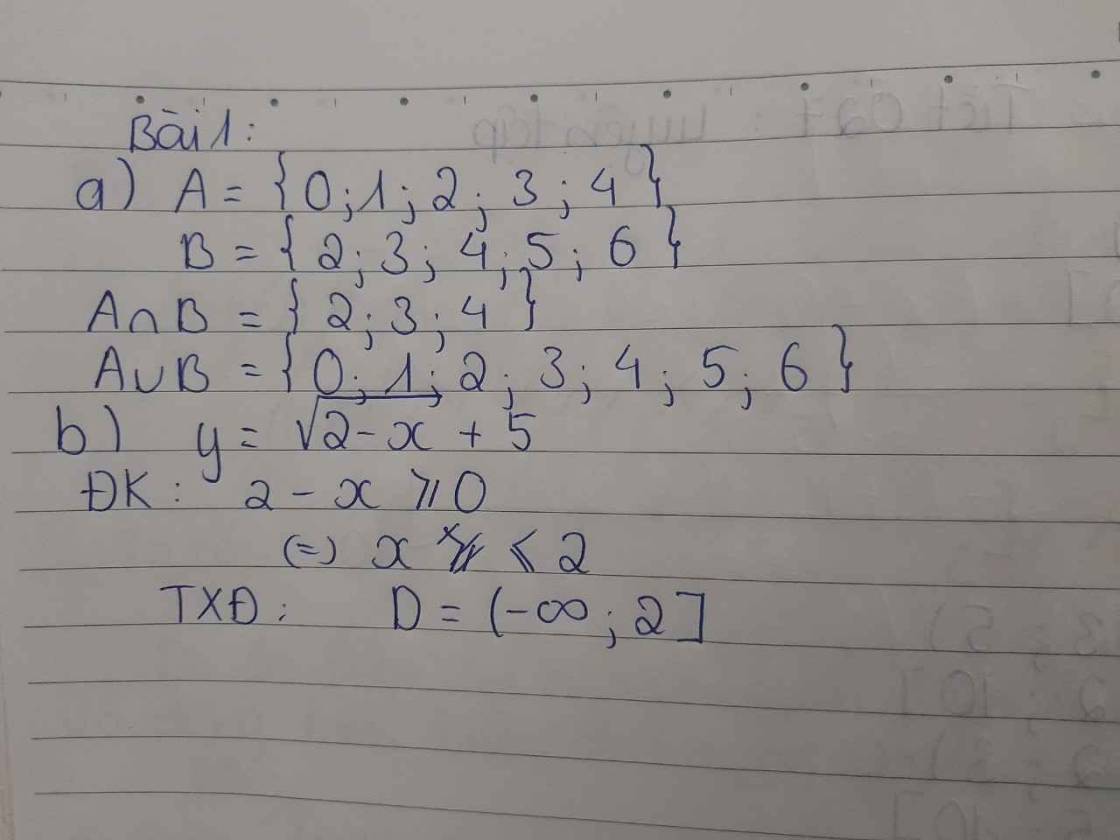 Bài 1:
a) A = {0; 1; 2; 3; 4}
B = {2; 3; 4; 5; 6}
A∩B = {2; 3; 4}
A∪B = {0; 1; 2; 3; 4; 5; 6}
b) y = √(2-x) + 5
ĐK: 2 - x ⩾ 0
(=) x ⩽ 2
TXĐ: D = (-∞; 2]